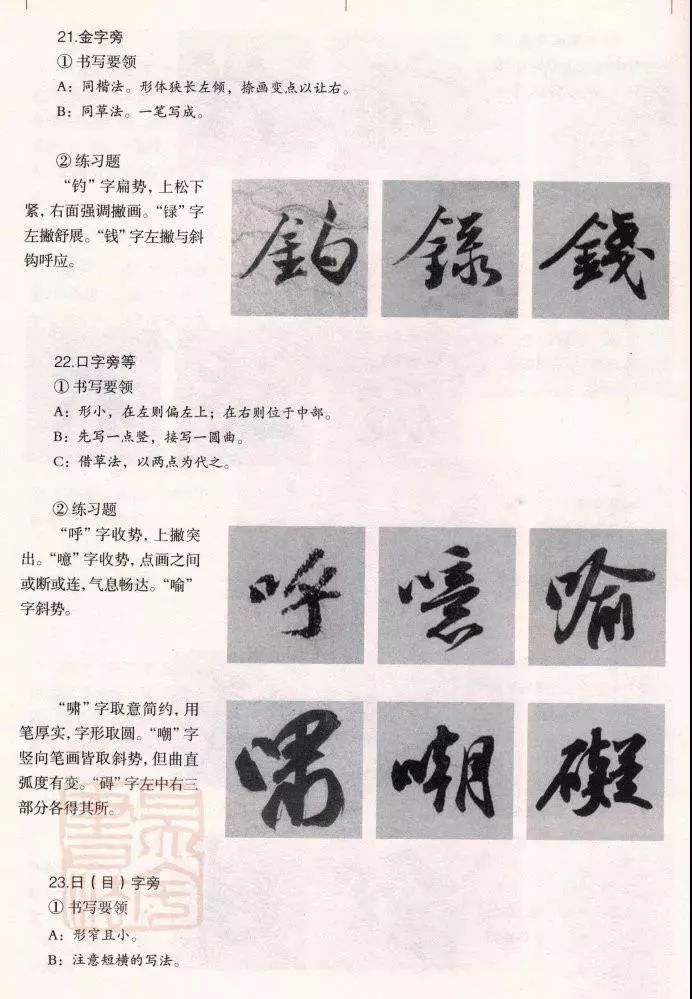 21.金字旁
① 书写要领
A：同楷法。形体狭长左倾，捺画变点以让右。
B：同草法。一笔写成。
② 练习题
“钓”字扁势，上松下
紧，右面强调撇画。“録”字
左撇舒展。“钱”字左撇与斜
钩呼应。
釣 録 錢
22.口字旁等
① 书写要领
A：形小，在左则偏左上；在右则位于中部。
B：先写一点竖，接写一圆曲。
C：借草法，以两点为代之。
② 练习题
“呼”字收势，上撇突
出。“噫”字收势，点画之间
或断或连，气息畅达。“喻”
字斜势。
呼 噫 喻
“啸”字取意简约，用
笔厚实，字形取圆。“嘲”字
竖向笔画皆取斜势，但曲直
弧度有变。“碍”字左中右三
部分各得其所。
嘲 礙
23.日（目）字旁
① 书写要领
A：形窄且小。
B：注意短横的写法。